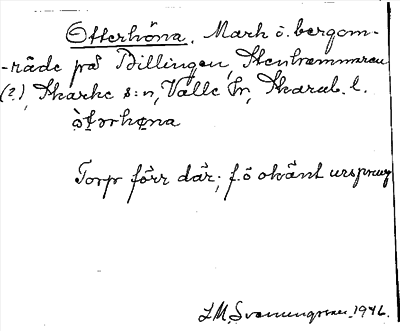 Otterhöna. Mark o. bergom-
-råde på Billingen, Stenhammaren
(?), Skarke s:n, Valle hd, Skarab. l.
òt̯ərhøna
Torp förr där; f.ö okänt ursprung
1946.